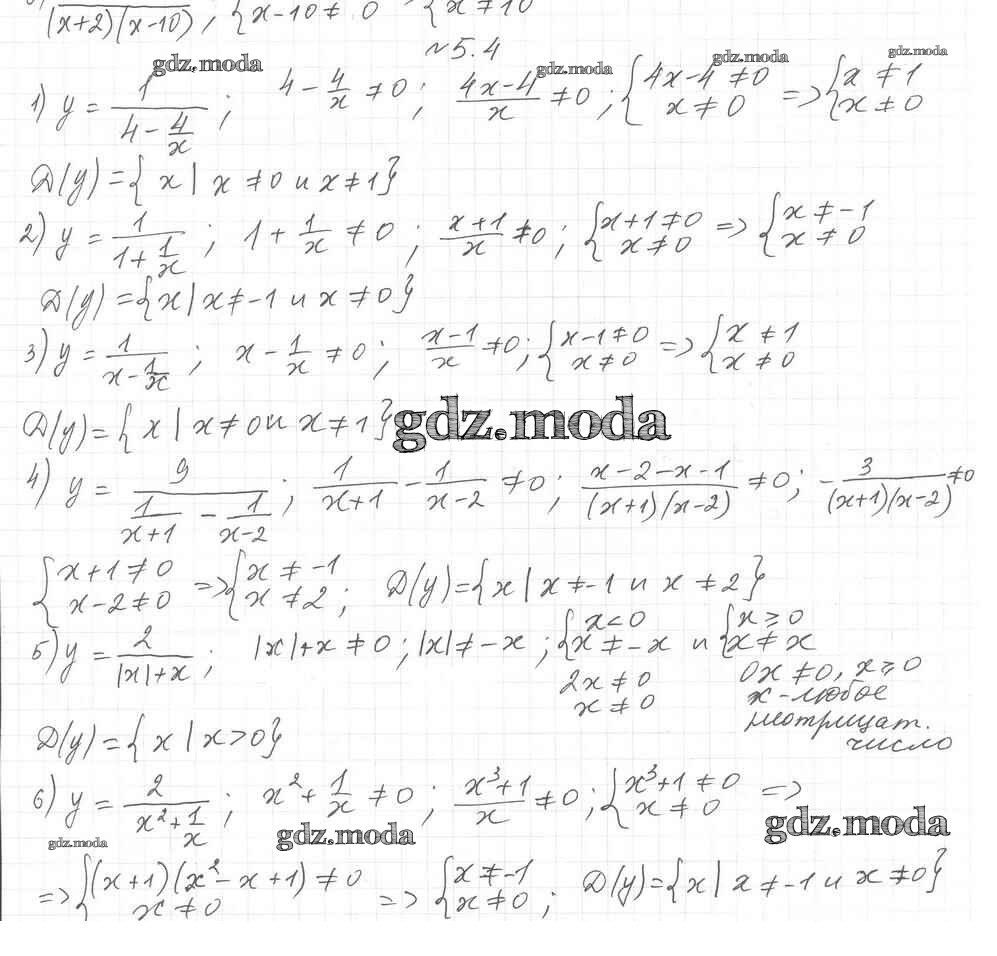 (x+2)(x-10) ; { x-10≠0 { x≠10
№5.4
gdz.moda gdz.moda gdz.moda gdz.moda
1) y = 1/(4 - 4/x) ; 4 - 4/x ≠ 0 ; (4x-4)/x ≠ 0 ; { 4x-4≠0 x≠0 => { x≠1 x≠0
D(y) = { x | x≠0 и x≠1}
2) y = 1/(1+1/x) ; 1+1/x ≠ 0 ; (x+1)/x ≠ 0 ; { x+1≠0 x≠0 => { x≠-1 x≠0
D(y) = {x | x≠-1 и x≠0}
3) y = 1/(x - 1/x) ; x - 1/x ≠ 0 ; (x-1)/x ≠ 0 ; { x-1≠0 x≠0 => { x≠1 x≠0
D(y) = { x | x≠0 и x≠1}
gdz.moda
4) y = 9/(1/(x+1) - 1/(x-2)) ; 1/(x+1) - 1/(x-2) ≠ 0 ; (x-2-x-1)/((x+1)(x-2)) ≠ 0 ; - 3/((x+1)(x-2)) ≠ 0
{ x+1≠0 x-2≠0 => { x≠-1 x≠2 ; D(y) = {x | x≠-1 и x≠2}
5) y = 2/(|x|+x) ; |x|+x ≠ 0 ; |x| ≠ -x ; { x<0 x≠-x и { x⩾0 x≠x
2x≠0 0x≠0, x⩾0
x≠0 x-любое
неотрицат.
число
D(y) = { x | x>0}
6) y = 2/(x²+1/x) ; x²+1/x ≠ 0 ; (x³+1)/x ≠ 0 ; { x³+1≠0 x≠0 =>
gdz.moda gdz.moda gdz.moda
=> { (x+1)(x²-x+1)≠0 x≠0 => { x≠-1 x≠0 ; D(y) = {x | x≠-1 и x≠0}